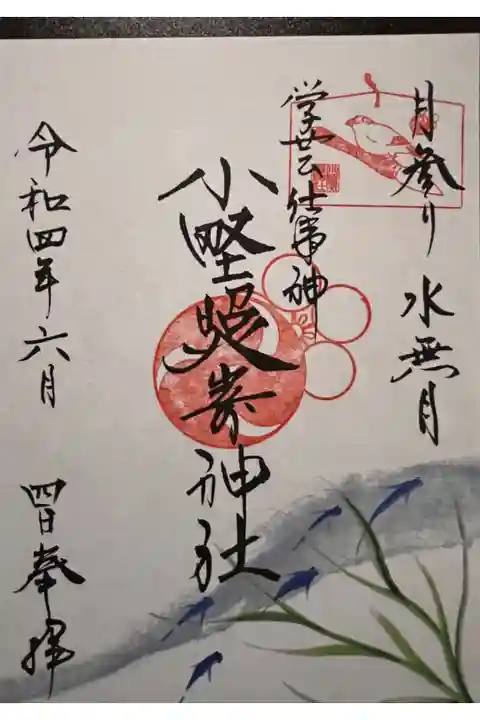 月参り 水無月
学芸仕事神
小野照崎神社
令和四年六月 四日奉拝